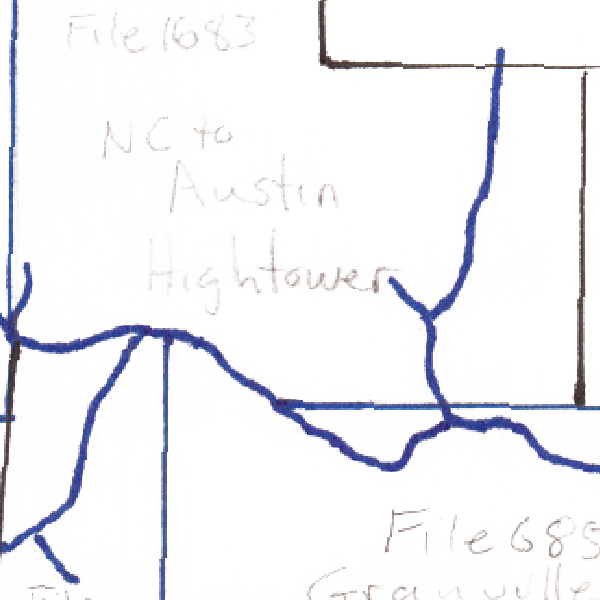 File 1683
NC to
Austin
Hightower
File 685
Granville